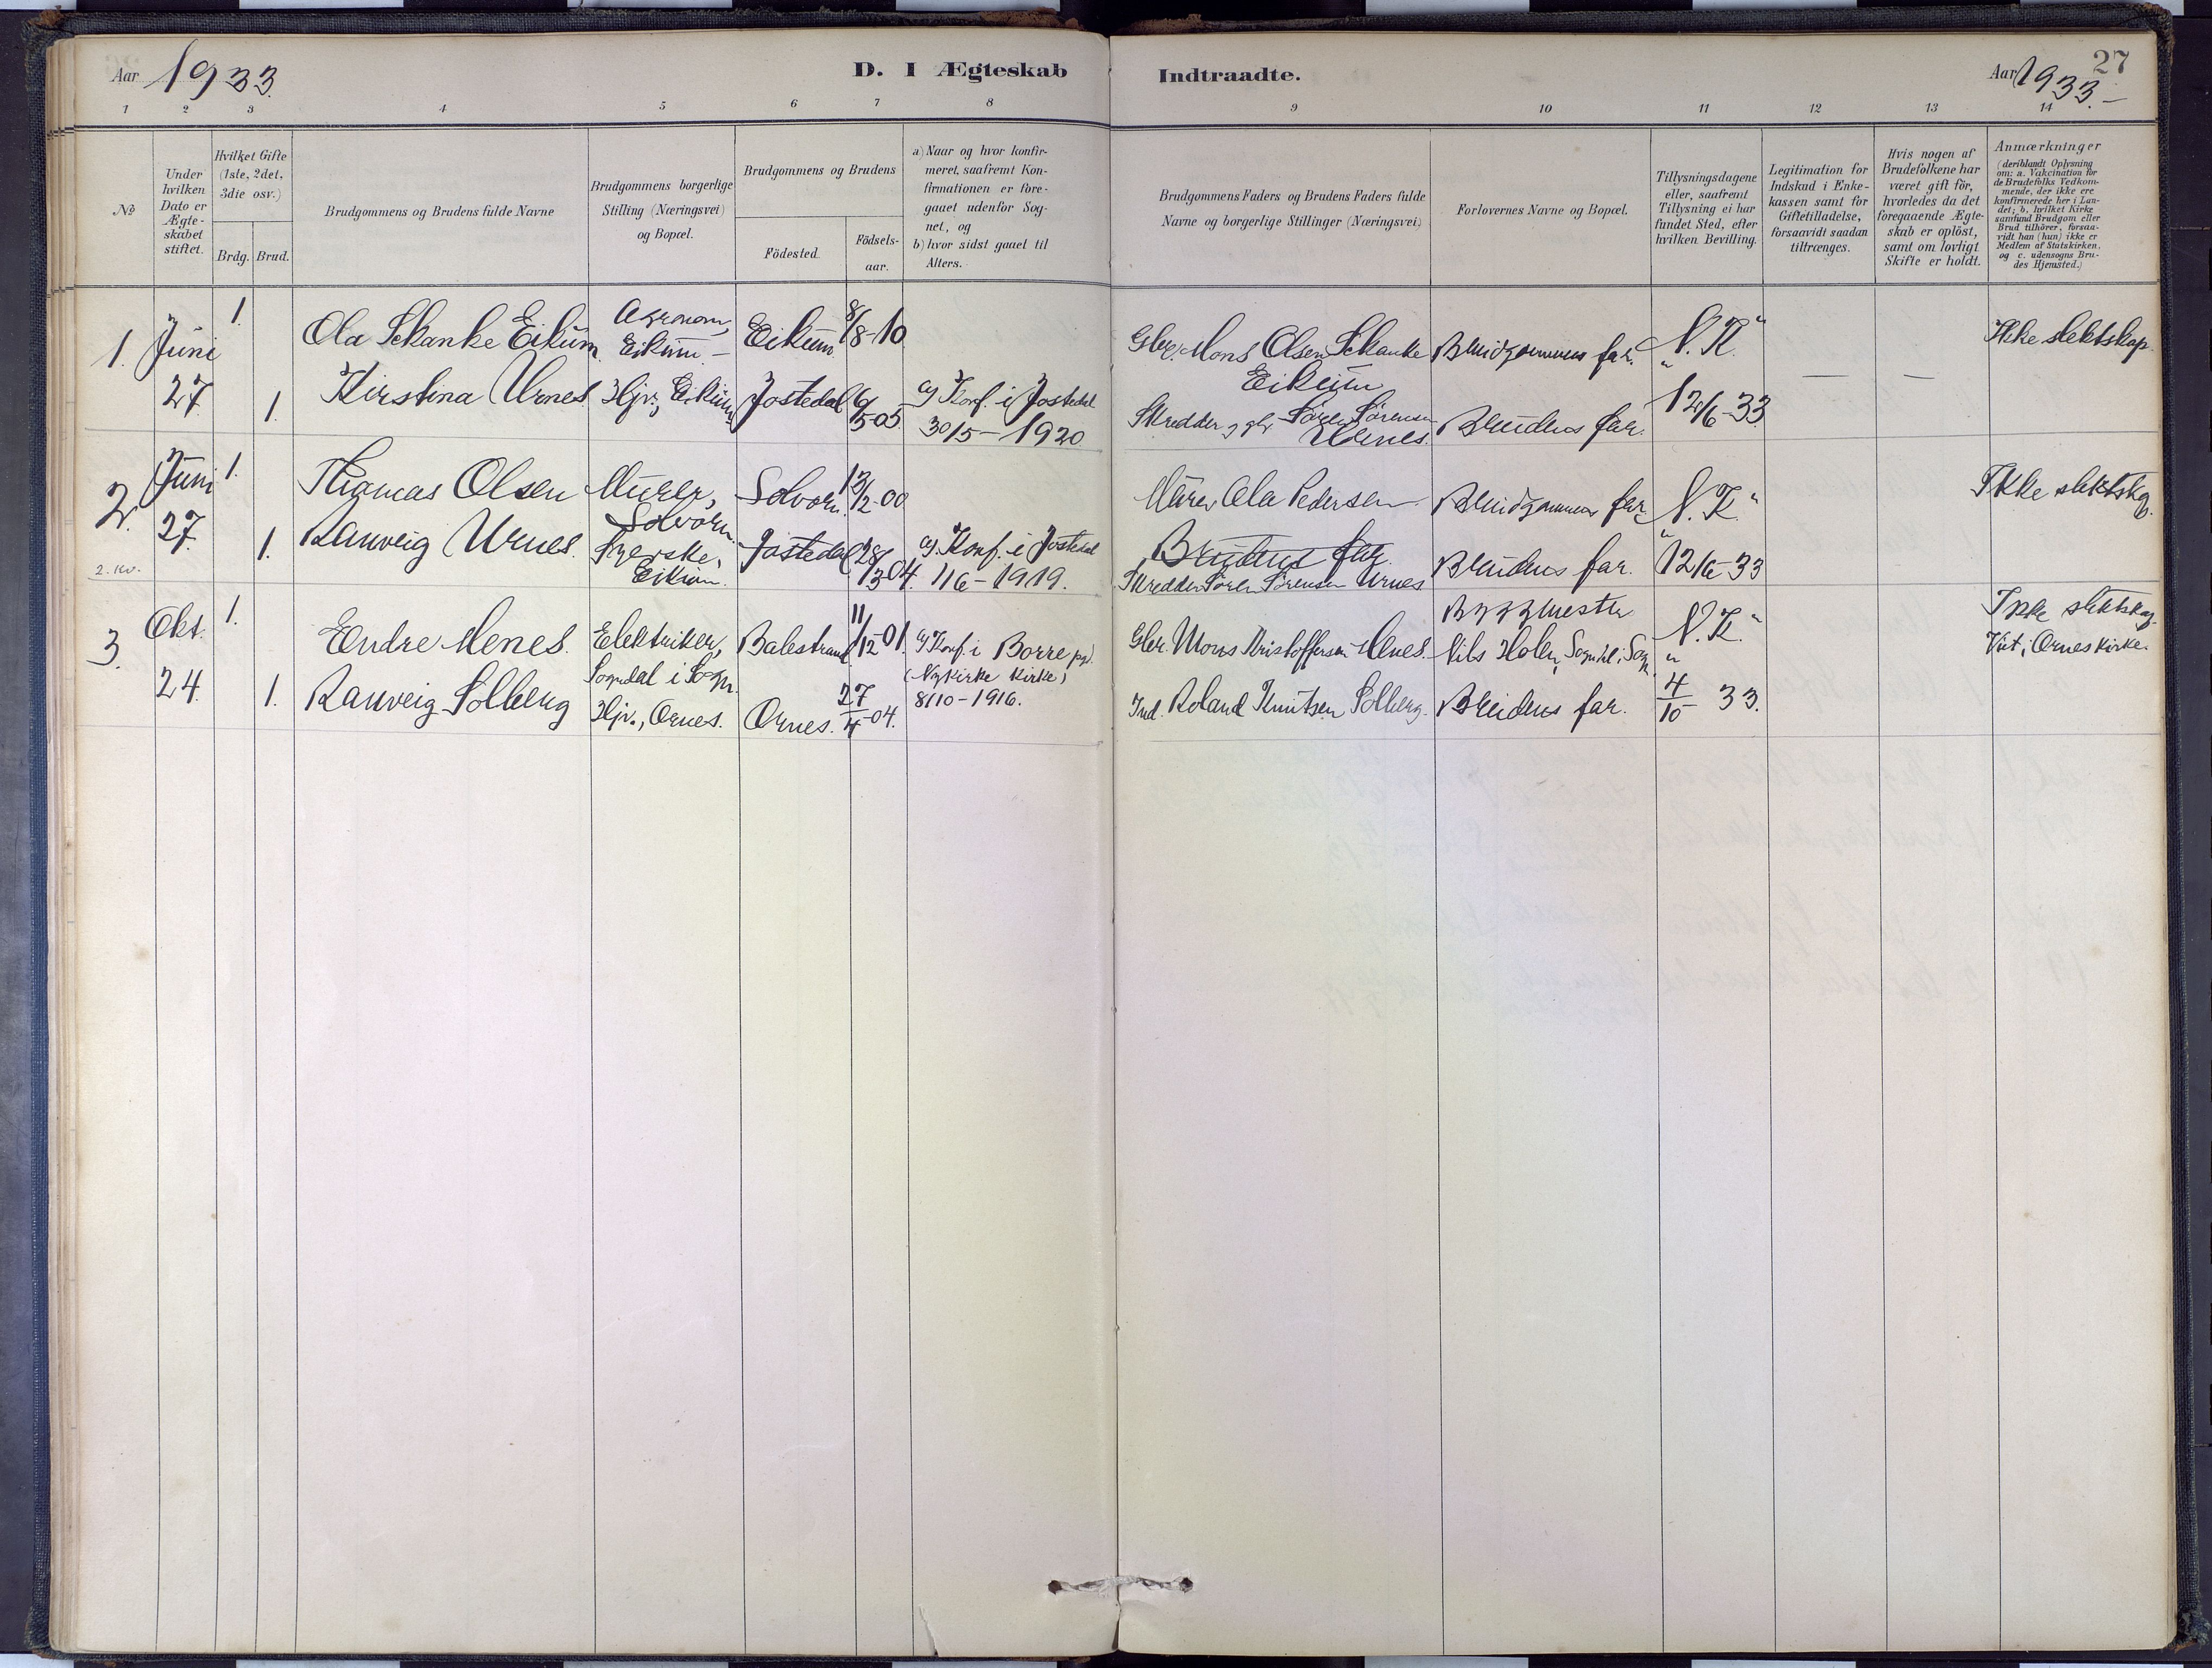 Aar 1933.
D. I Ægteskab Indtraadte.
Aar 1933.-
27
1 2 3 4 5 6 7 8 9 10 11 12 13 14
No
Under hvilken Dato er Ægte-skabet stiftet.
Hvilket Gifte (1ste, 2det, 3die osv.)
Brdg. Brud.
Brudgommens og Brudens fulde Navne
Brudgommens borgerlige Stilling (Næringsvei) og Bopæl.
Brudgommens og Brudens
Födested.
Födsels-aar.
a) Naar og hvor konfir-
meret, saafremt Kon-
firmationen er fore-
gaaet udenfor Sog-
net, og
b) hvor sidst gaaet til
Alters.
Brudgommens Faders og Brudens Faders fulde
Navne og borgerlige Stillinger (Næringsvei)
Forlovernes Navne og Bopæl.
Tillysningsdagene
eller, saafremt
Tillysning ei har
fundet Sted, efter
hvilken Bevilling.
Legitimation for
Indskud i Enke-
kassen samt for
Giftetilladelse,
forsaavidt saadan
tiltrænges.
Hvis nogen af
Brudefolkene har
været gift för,
hvorledes da det
foregaaende Ægte-
skab er oplöst,
samt om lovligt
Skifte er holdt.
Anmærkninger
(deriblandt Oplysning
om: a. Vakcination for
de Brudefolks Vedkom-
mende, der ikke ere
konfirmerede her i Lan-
det; b. hvilket Kirke
samfund Brudgom eller
Brud tilhörer, forsaa-
vidt han (hun) ikke er
Medlem af Statskirken.
og c. udensogns Bru-
des Hjemsted.)
1. Juni 27. 1. Ola Schanke Eikum Agronom, Eikum - Eikum 8/8-10 Gbr. Mons Olsen Schanke Eikum Brudgommens far. "N.K." 12/6-33 — — Ikke slektskap.
1. Kirstina Urnes. Hjv., Eikum Jostedal 6/5-05. a) Konf. i Jostedal 30/5-1920 Skredder og gbr Søren Sørensen Urnes. Brudens far.
2. Juni 27. 1. Thomas Olsen Murer, Solvorn. Solvorn. 13/2-00 Murer Ola Pedersen Brudgommens far. "N.K." 12/6-33 Ikke slektskap.
1. Ranveig Urnes. Syerske, Eikum. Jostedal 28/3-04. a) Konf. i Jostedal 1/6-1919. Brudens far. Skredder Søren Sørensen Urnes Brudens far.
2. kv.
3. Okt. 24. 1. Endre Menes. Elektriker, Sogndal i Sogn. Balestrand 11/12-01. a) Konf. i Borre pgd. (Nykirke kirke) 8/10-1916. Gbr. Mons Kristoffersen Menes. Byggmester Nils Holen, Sogndal i Sogn. "N.K." 4/10 33. Ikke slektskap. Viet i Ornes kirke.
1. Ranveig Solberg Hjv., Ornes. Ornes. 27/4-04. Ind. Roland Knutsen Solberg. Brudens far.